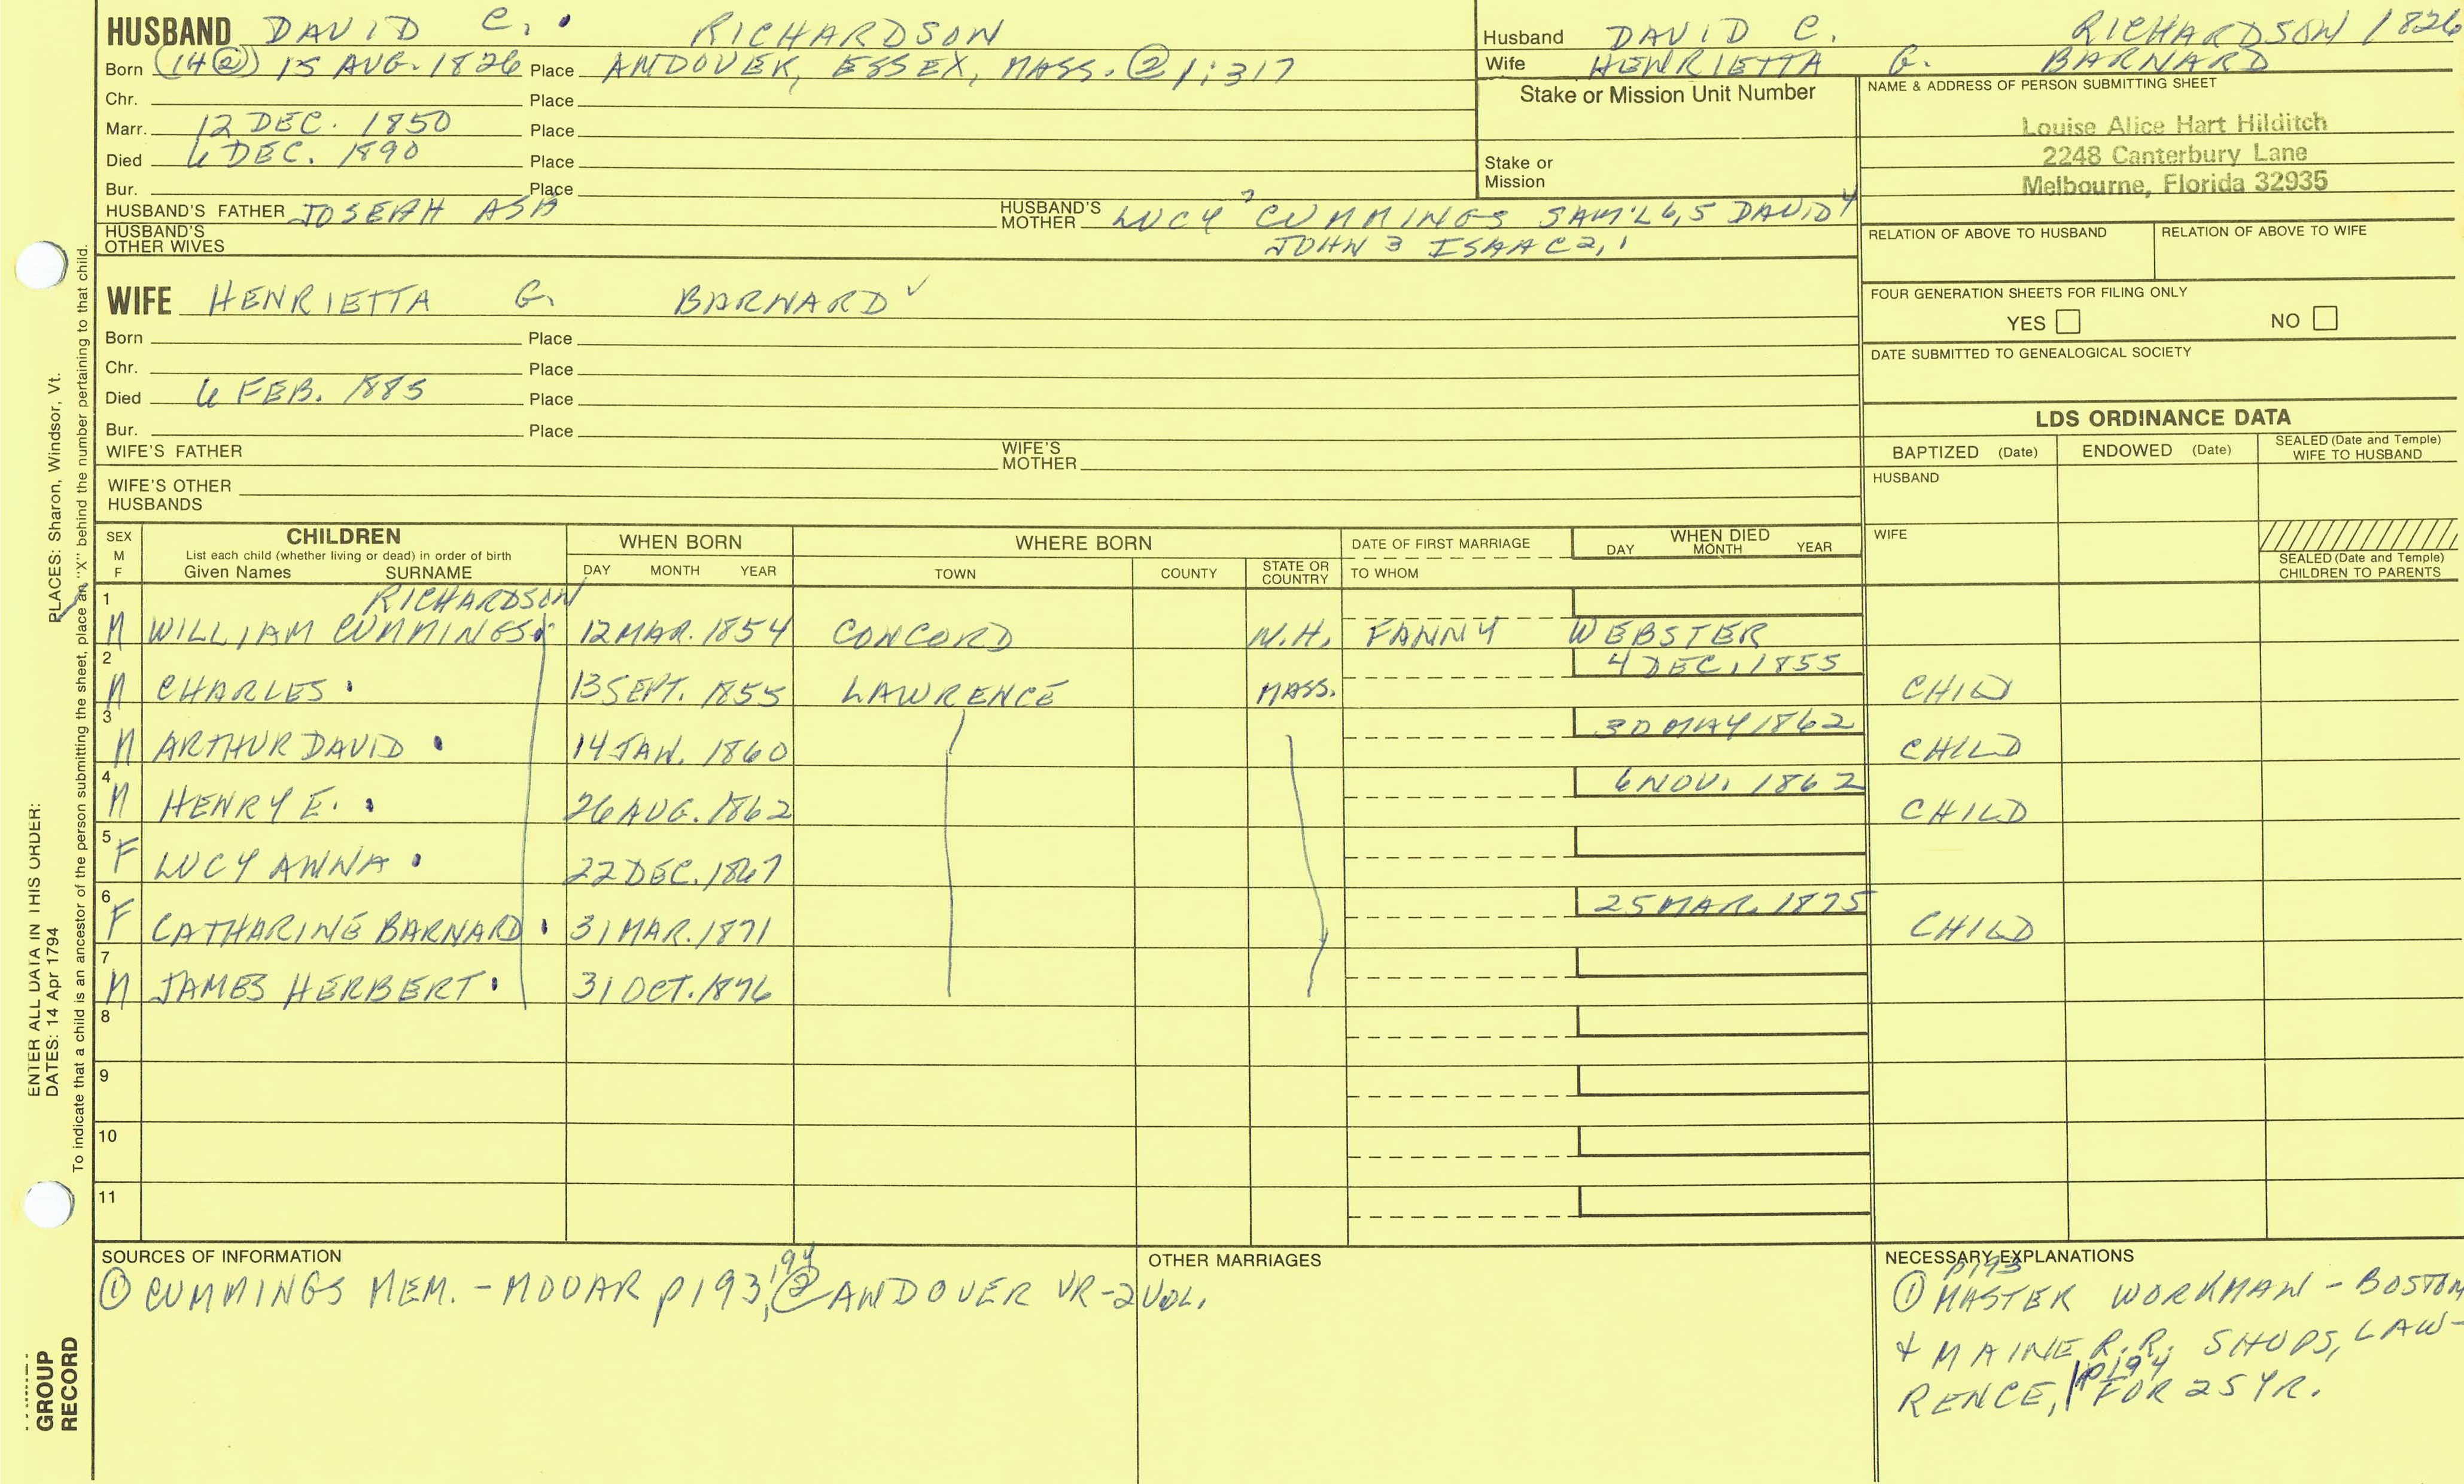 HUSBAND DAVID C. RICHARDSON
Born (14②) 15 AUG. 1826 Place ANDOVER, ESSEX, MASS. ② 1:317
Chr. Place
Marr. 12 DEC. 1850 Place
Died 6 DEC. 1890 Place
Bur. Place
HUSBAND'S FATHER JOSEPH ASA HUSBAND'S MOTHER LUCY 7 CUMMINGS SAM'L 6,5 DAVID 4
HUSBAND'S OTHER WIVES JOHN 3 ISAAC 2,1
Husband DAVID C. RICHARDSON 1826
Wife HENRIETTA G. BARNARD
Stake or Mission Unit Number
Stake or
Mission
NAME & ADDRESS OF PERSON SUBMITTING SHEET
Louise Alice Hart Hilditch
2248 Canterbury Lane
Melbourne, Florida 32935
RELATION OF ABOVE TO HUSBAND RELATION OF ABOVE TO WIFE
FOUR GENERATION SHEETS FOR FILING ONLY
YES NO
DATE SUBMITTED TO GENEALOGICAL SOCIETY
WIFE HENRIETTA G. BARNARD ✓
Born Place
Chr. Place
Died 6 FEB. 1885 Place
Bur. Place
WIFE'S FATHER WIFE'S MOTHER
WIFE'S OTHER
HUSBANDS
LDS ORDINANCE DATA
BAPTIZED (Date) ENDOWED (Date) SEALED (Date and Temple) WIFE TO HUSBAND
HUSBAND
WIFE
SEALED (Date and Temple)
CHILDREN TO PARENTS
SEX M F
CHILDREN
List each child (whether living or dead) in order of birth
Given Names SURNAME
WHEN BORN
DAY MONTH YEAR
WHERE BORN
TOWN COUNTY STATE OR COUNTRY
DATE OF FIRST MARRIAGE
TO WHOM
WHEN DIED
DAY MONTH YEAR
RICHARDSON
1 M WILLIAM CUMMINGS 12 MAR. 1854 CONCORD N.H. FANNY WEBSTER
4 DEC. 1855
2 M CHARLES 13 SEPT. 1855 LAWRENCE MASS. CHILD
30 MAY 1862
3 M ARTHUR DAVID 14 JAN. 1860 CHILD
6 NOV. 1862
4 M HENRY E. 26 AUG. 1862 CHILD
5 F LUCY ANNA 22 DEC. 1867
25 MAR. 1875
6 F CATHARINE BARNARD 31 MAR. 1871 CHILD
7 M JAMES HERBERT 31 OCT. 1876
8
9
10
11
SOURCES OF INFORMATION
① CUMMINGS MEM. - MOOAR p193, 194 ② ANDOVER VR - 2 VOL.
OTHER MARRIAGES
NECESSARY EXPLANATIONS
p193
① MASTER WORKMAN - BOSTON
+ MAINE R.R. SHOPS, LAW-
p194
RENCE, FOR 25 YR.
ENTER ALL DATA IN THIS ORDER:
DATES: 14 Apr 1794 PLACES: Sharon, Windsor, Vt.
To indicate that a child is an ancestor of the person submitting the sheet, place an "X" behind the number pertaining to that child.
GROUP
RECORD